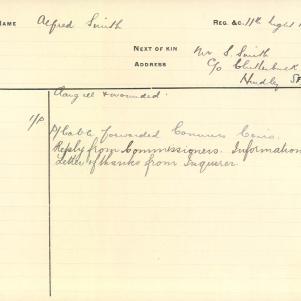 NAME Alfred Smith REG. &C. 11th Light
NEXT OF KIN Mr S. Smith
ADDRESS C/o Clutterbuck
Hindley St
Dang ill & wounded.
Cable forwarded Commrs Cairo.
Reply from Commissioners. Information
Letter of thanks from Inquirer.